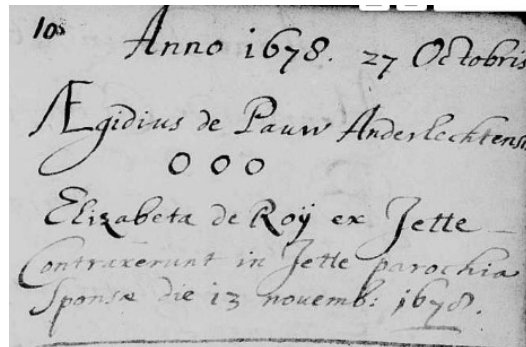 10s
Anno 1678. 27 Octobris
Ægidius de Pauw Anderlechtens
O O O
Elizabeta de Roÿ ex Jette
Contraxerunt in Jette parochia
Sponsæ die 13 novemb: 1678.